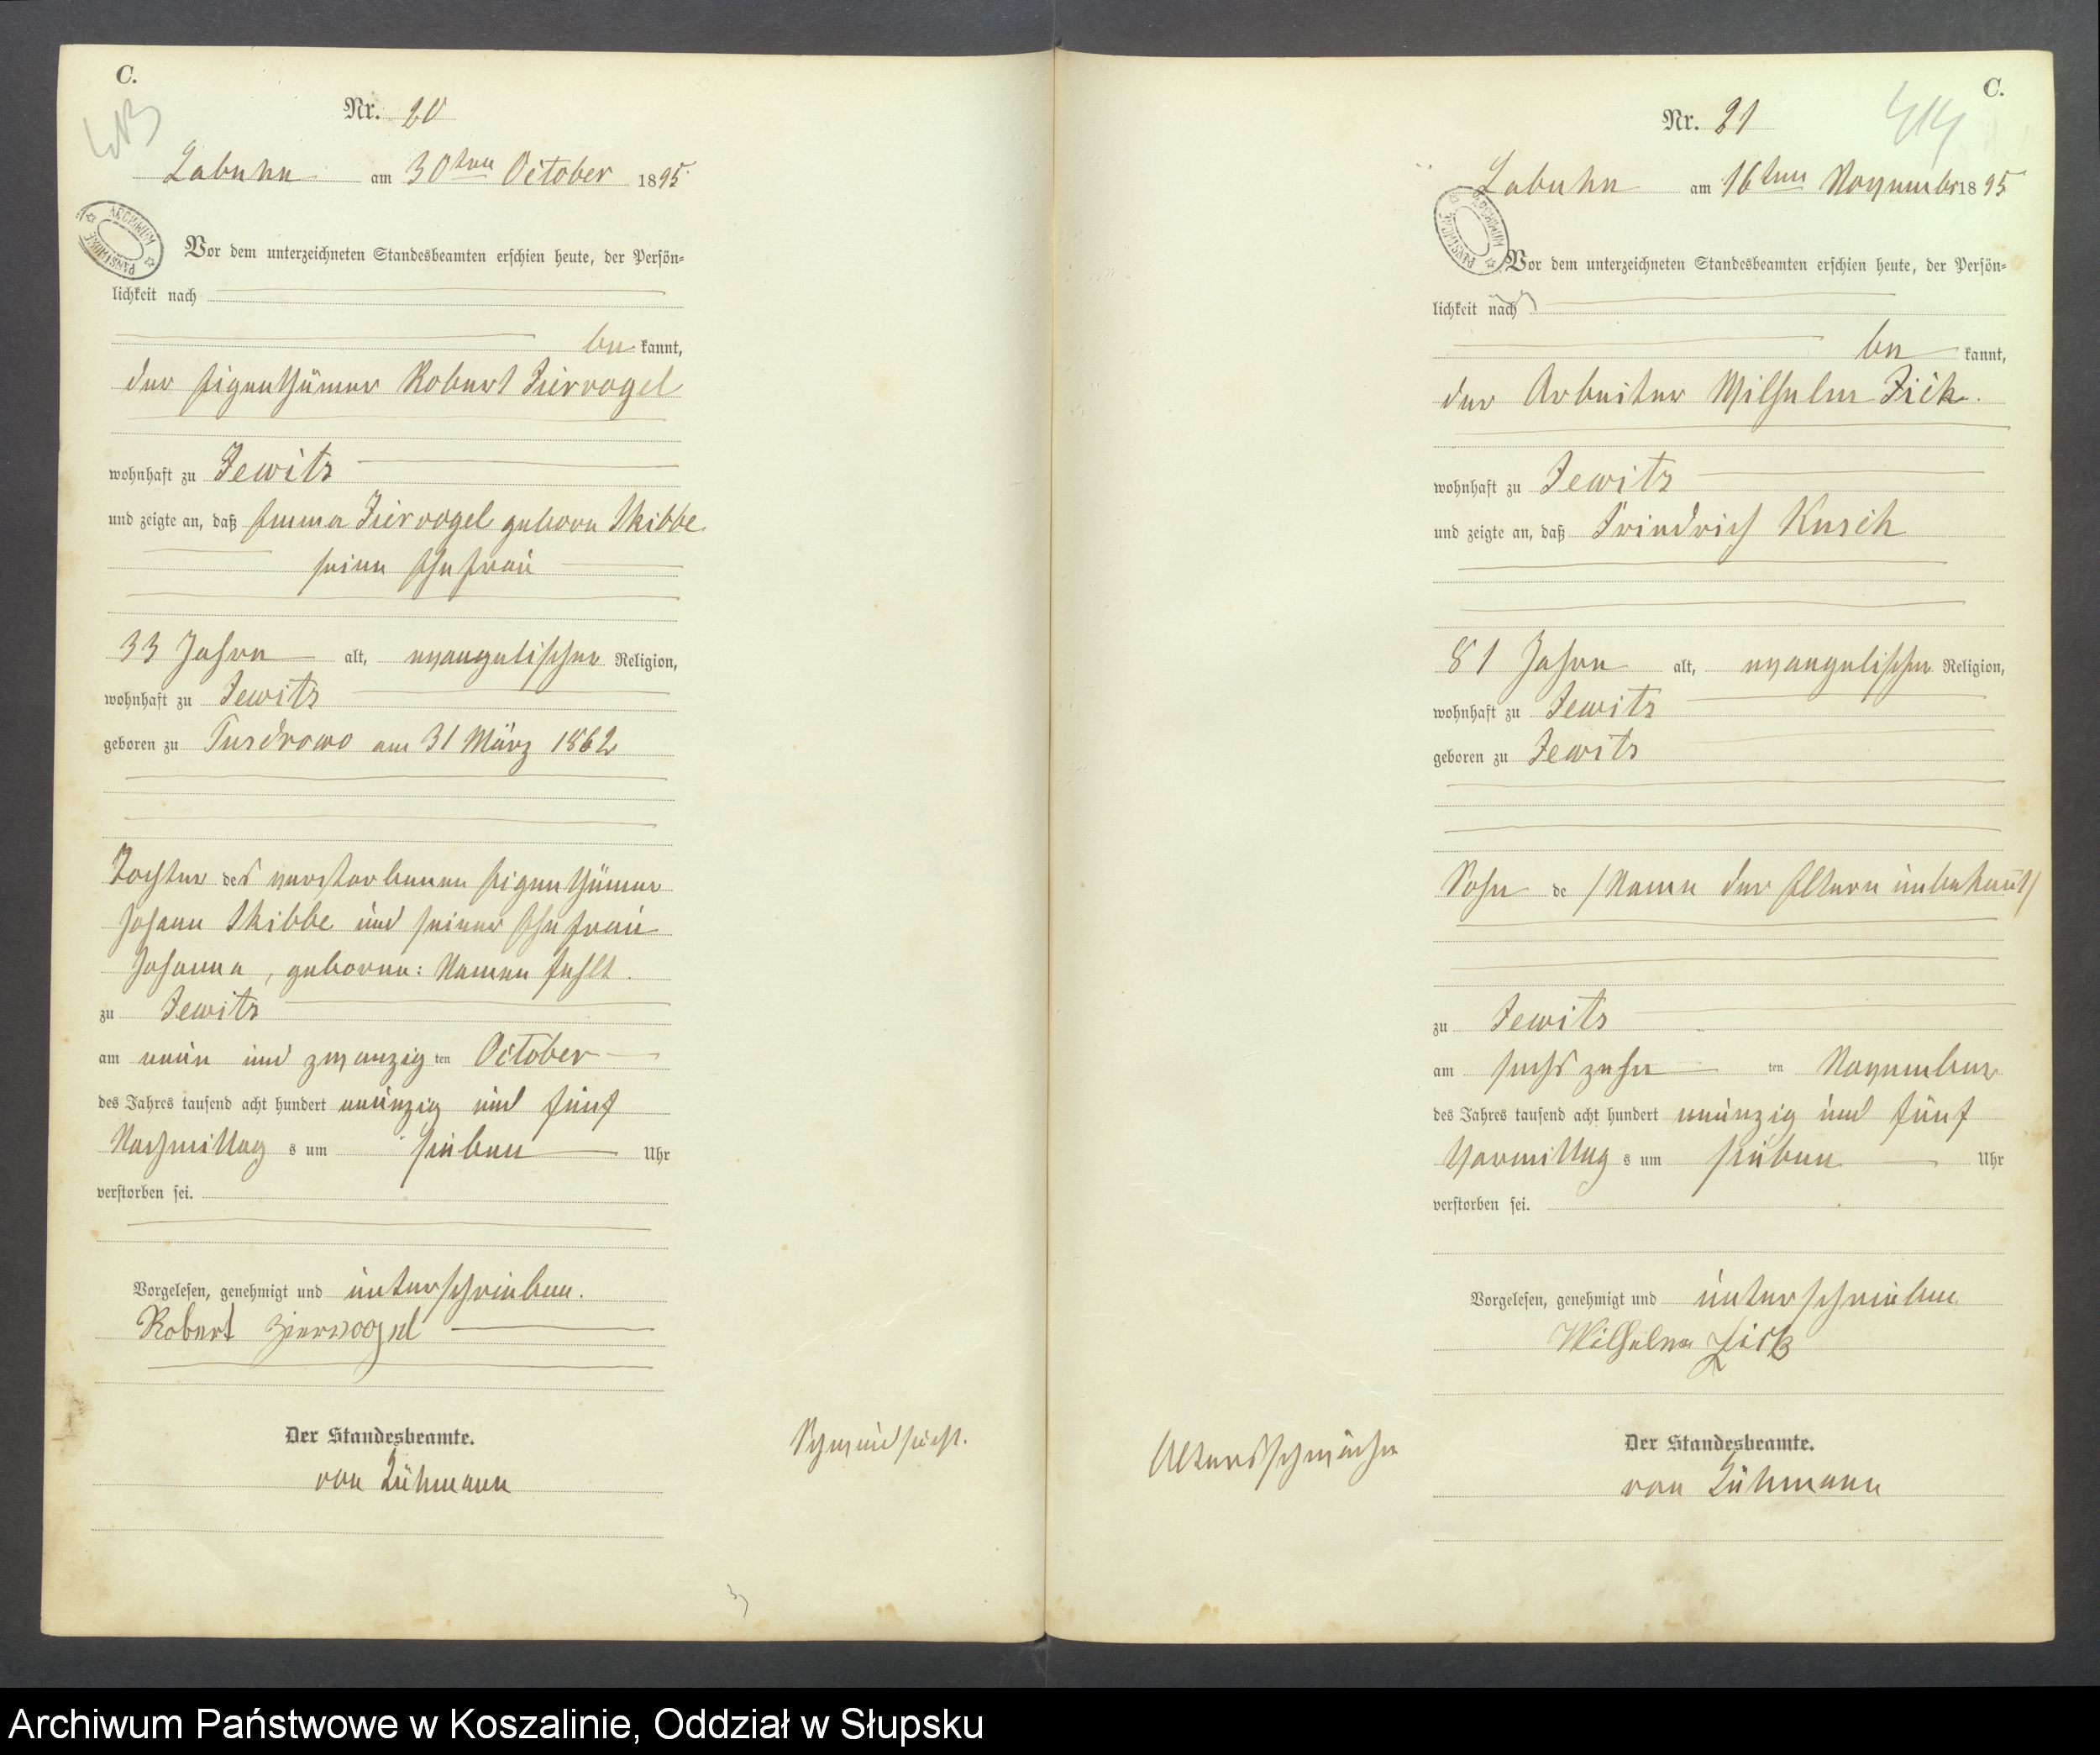 C.
Nr. 20
Labuhn am 30ten October 1895
ARCHIWUM PAŃSTWOWE
Vor dem unterzeichneten Standesbeamten erschien heute, der Persön-
lichkeit nach
be kannt,
der Eigenthümer Robert Ziervogel
wohnhaft zu Zewitz
und zeigte an, daß Emma Ziervogel geborn Skibbe
seine Ehefrau
33 Jahre alt, evangelischer Religion,
wohnhaft zu Zewitz
geboren zu am 31 März 1862
Tochter des verstorbenen Eigenthümer
Johann Skibbe und seiner Ehefrau
Johanna, geborene: Namen fehlt.
zu Zewitz
am neun und zwanzig ten October
des Jahres tausend acht hundert neunzig und fünf
Nachmittag s um sieben Uhr
verstorben sei.
Vorgelesen, genehmigt und unterschrieben.
Robert Ziervogel
Der Standesbeamte.
von Lühmann
Schwindsucht.
C.
414
Nr. 21
Labuhn am 16ten November 1895
ARCHIWUM PAŃSTWOWE
Vor dem unterzeichneten Standesbeamten erschien heute, der Persön-
lichkeit nach
be kannt,
der Arbeiter Wilhelm Zick.
wohnhaft zu Zewitz
und zeigte an, daß Friedrich Kusch
81 Jahre alt, evangelischer Religion,
wohnhaft zu Zewitz
geboren zu Zewitz
Sohn de /Name der Eltern unbekannt/
zu Zewitz
am sechszehn ten November
des Jahres tausend acht hundert neunzig und fünf
Vormittag s um sieben Uhr
verstorben sei.
Vorgelesen, genehmigt und unterschrieben.
Wilhelm Zick
Der Standesbeamte.
von Lühmann
Altersschwäche
Archiwum Państwowe w Koszalinie, Oddział w Słupsku